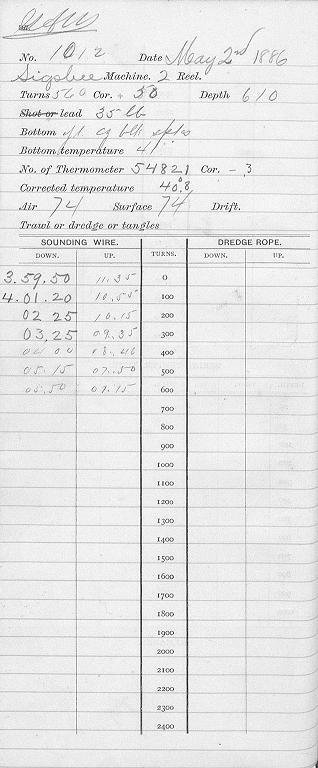 No. 1012 Date May 2nd 1886
Sigsbee Machine. 2 Reel.
Turns 560 Cor. + 50 Depth 610
Shot or lead 35 lb
Bottom yl. cy blk spks
Bottom temperature 41
No. of Thermometer 54821 Cor. - .3
Corrected temperature 40.8
Air 74 Surface 74 Drift.
Trawl or dredge or tangles
SOUNDING WIRE. DREDGE ROPE.
DOWN. UP. TURNS. DOWN. UP.
3.59.50 11.35 0
4.01.20 10.55 100
02 25 10.15 200
03.25 09.35 300
04 00 08.40 400
05.15 07.50 500
05.50 07.15 600
700
800
900
1000
1100
1200
1300
1400
1500
1600
1700
1800
1900
2000
2100
2200
2300
2400